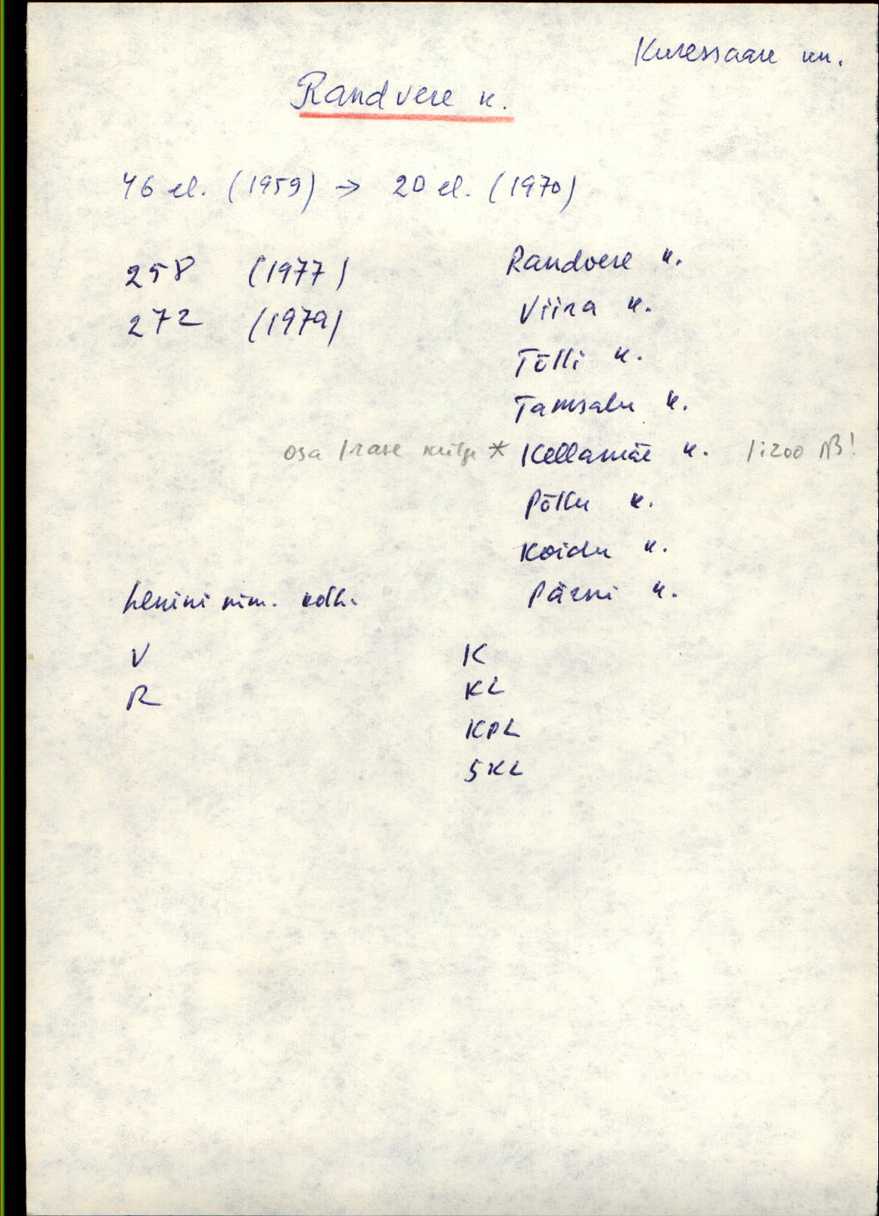 Kuressaare kn.
Randvere k.
46 el. (1959) → 20 el. (1970)
258 (1977) Randvere k.
272 (1979) Viira k.
Tõlli k.
Tamsalu k.
osa Irase külge * Kellamäe k. NB!
Põllu k.
Koidu k.
Lenini nim. kolh. Pärni k.
V K
R KL
KPL
SKL